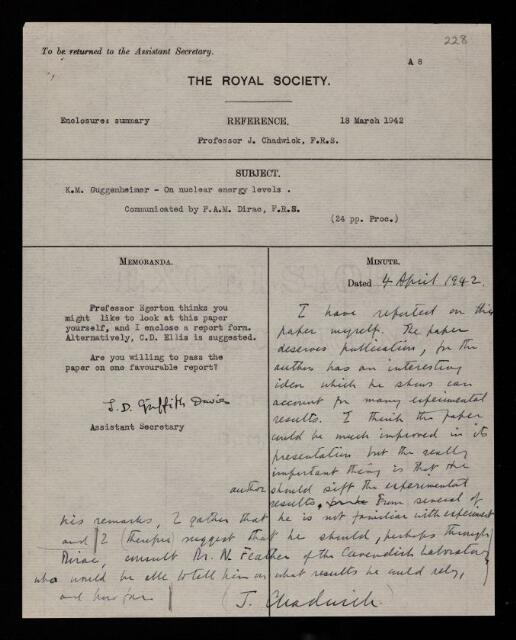 228
To be returned to the Assistant Secretary.
A 8
THE ROYAL SOCIETY.
Enclosure: summary
REFERENCE.
18 March 1942
Professor J. Chadwick, F.R.S.
SUBJECT.
K.M. Guggenheimer - On nuclear energy levels .
Communicated by P.A.M. Dirac, F.R.S.
(24 pp. Proc.)
MEMORANDA.
Professor Egerton thinks you
might like to look at this paper
yourself, and I enclose a report form.
Alternatively, C.D. Ellis is suggested.
Are you willing to pass the
paper on one favourable report?
S. D. Griffith Davies
Assistant Secretary
MINUTE.
Dated 4 April 1942.
I have reported on this
paper myself. The paper
deserves publication, for the
author has an interesting
idea which he shows can
account for many experimental
results. I think the paper
could be much improved in its
presentation but the really
important thing is that the
author should sift the experimental
results. From several of
his remarks, I gather that he is not familiar with experiment
and I (therefore) suggest that he should, perhaps through
Dirac, consult Dr. N. Feather of the Cavendish Laboratory
who would be able to tell him on what results he could rely,
and how far.
J. Chadwick.